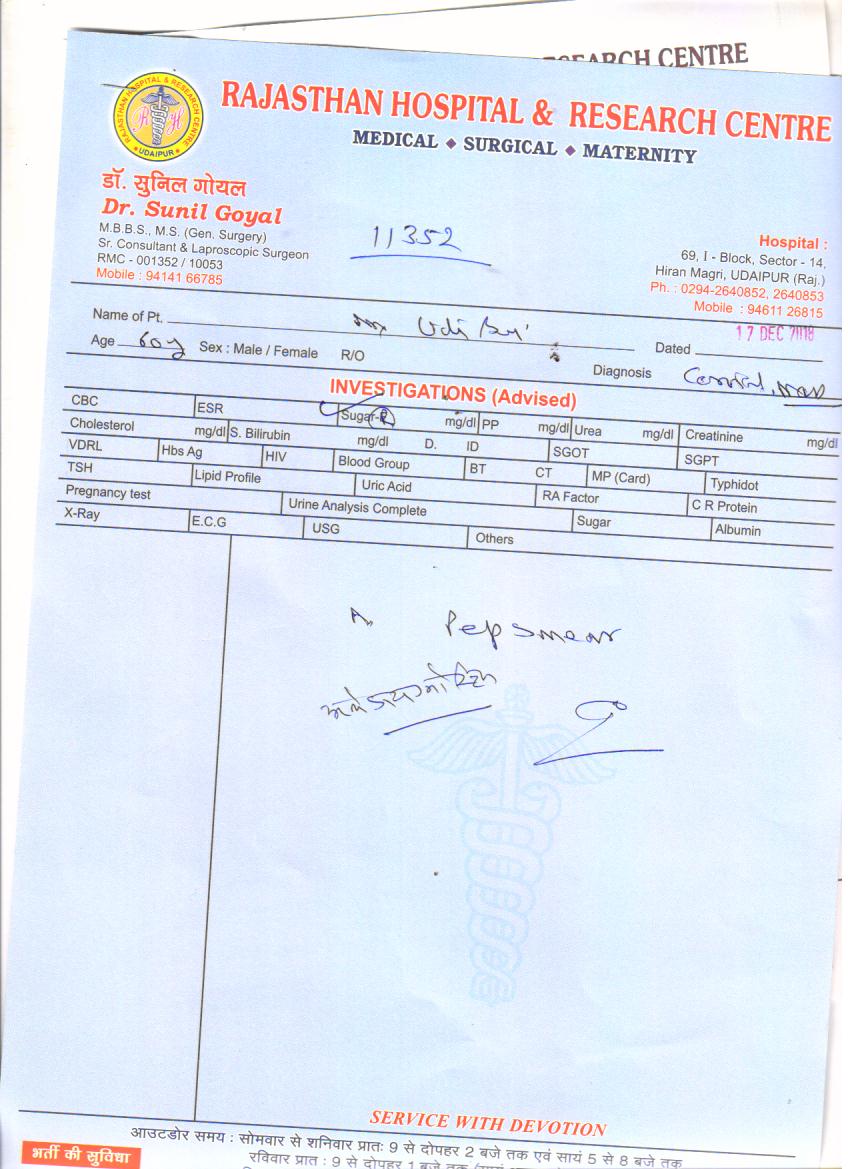 RESEARCH CENTRE
RAJASTHAN HOSPITAL & RESEARCH CENTRE
UDAIPUR
RH
RAJASTHAN HOSPITAL & RESEARCH CENTRE
MEDICAL ◆ SURGICAL ◆ MATERNITY
डॉ. सुनिल गोयल
Dr. Sunil Goyal
M.B.B.S., M.S. (Gen. Surgery)
Sr. Consultant & Laproscopic Surgeon
RMC - 001352 / 10053
Mobile : 94141 66785
11352
Hospital :
69, I - Block, Sector - 14,
Hiran Magri, UDAIPUR (Raj.)
Ph. : 0294-2640852, 2640853
Mobile : 94611 26815
Name of Pt. Udi Bai
Dated 17 DEC 2018
Age 60y Sex : Male / Female R/O
Diagnosis
INVESTIGATIONS (Advised)
CBC ESR Sugar-R mg/dl PP mg/dl Urea mg/dl Creatinine mg/dl
Cholesterol mg/dl S. Bilirubin mg/dl D. ID SGOT SGPT
VDRL Hbs Ag HIV Blood Group BT CT MP (Card) Typhidot
TSH Lipid Profile Uric Acid RA Factor C R Protein
Pregnancy test Urine Analysis Complete Sugar Albumin
X-Ray E.C.G USG Others
Pep smear
SERVICE WITH DEVOTION
आउटडोर समय : सोमवार से शनिवार प्रातः 9 से दोपहर 2 बजे तक एवं सायं 5 से 8 बजे तक
भर्ती की सुविधा
रविवार प्रात : 9 से दोपहर 1 बजे तक